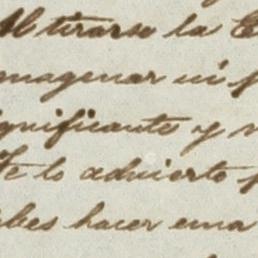 Al tirarse la E
magenar ni p
gnificante y n
Te lo advierto p
ebes hacer una